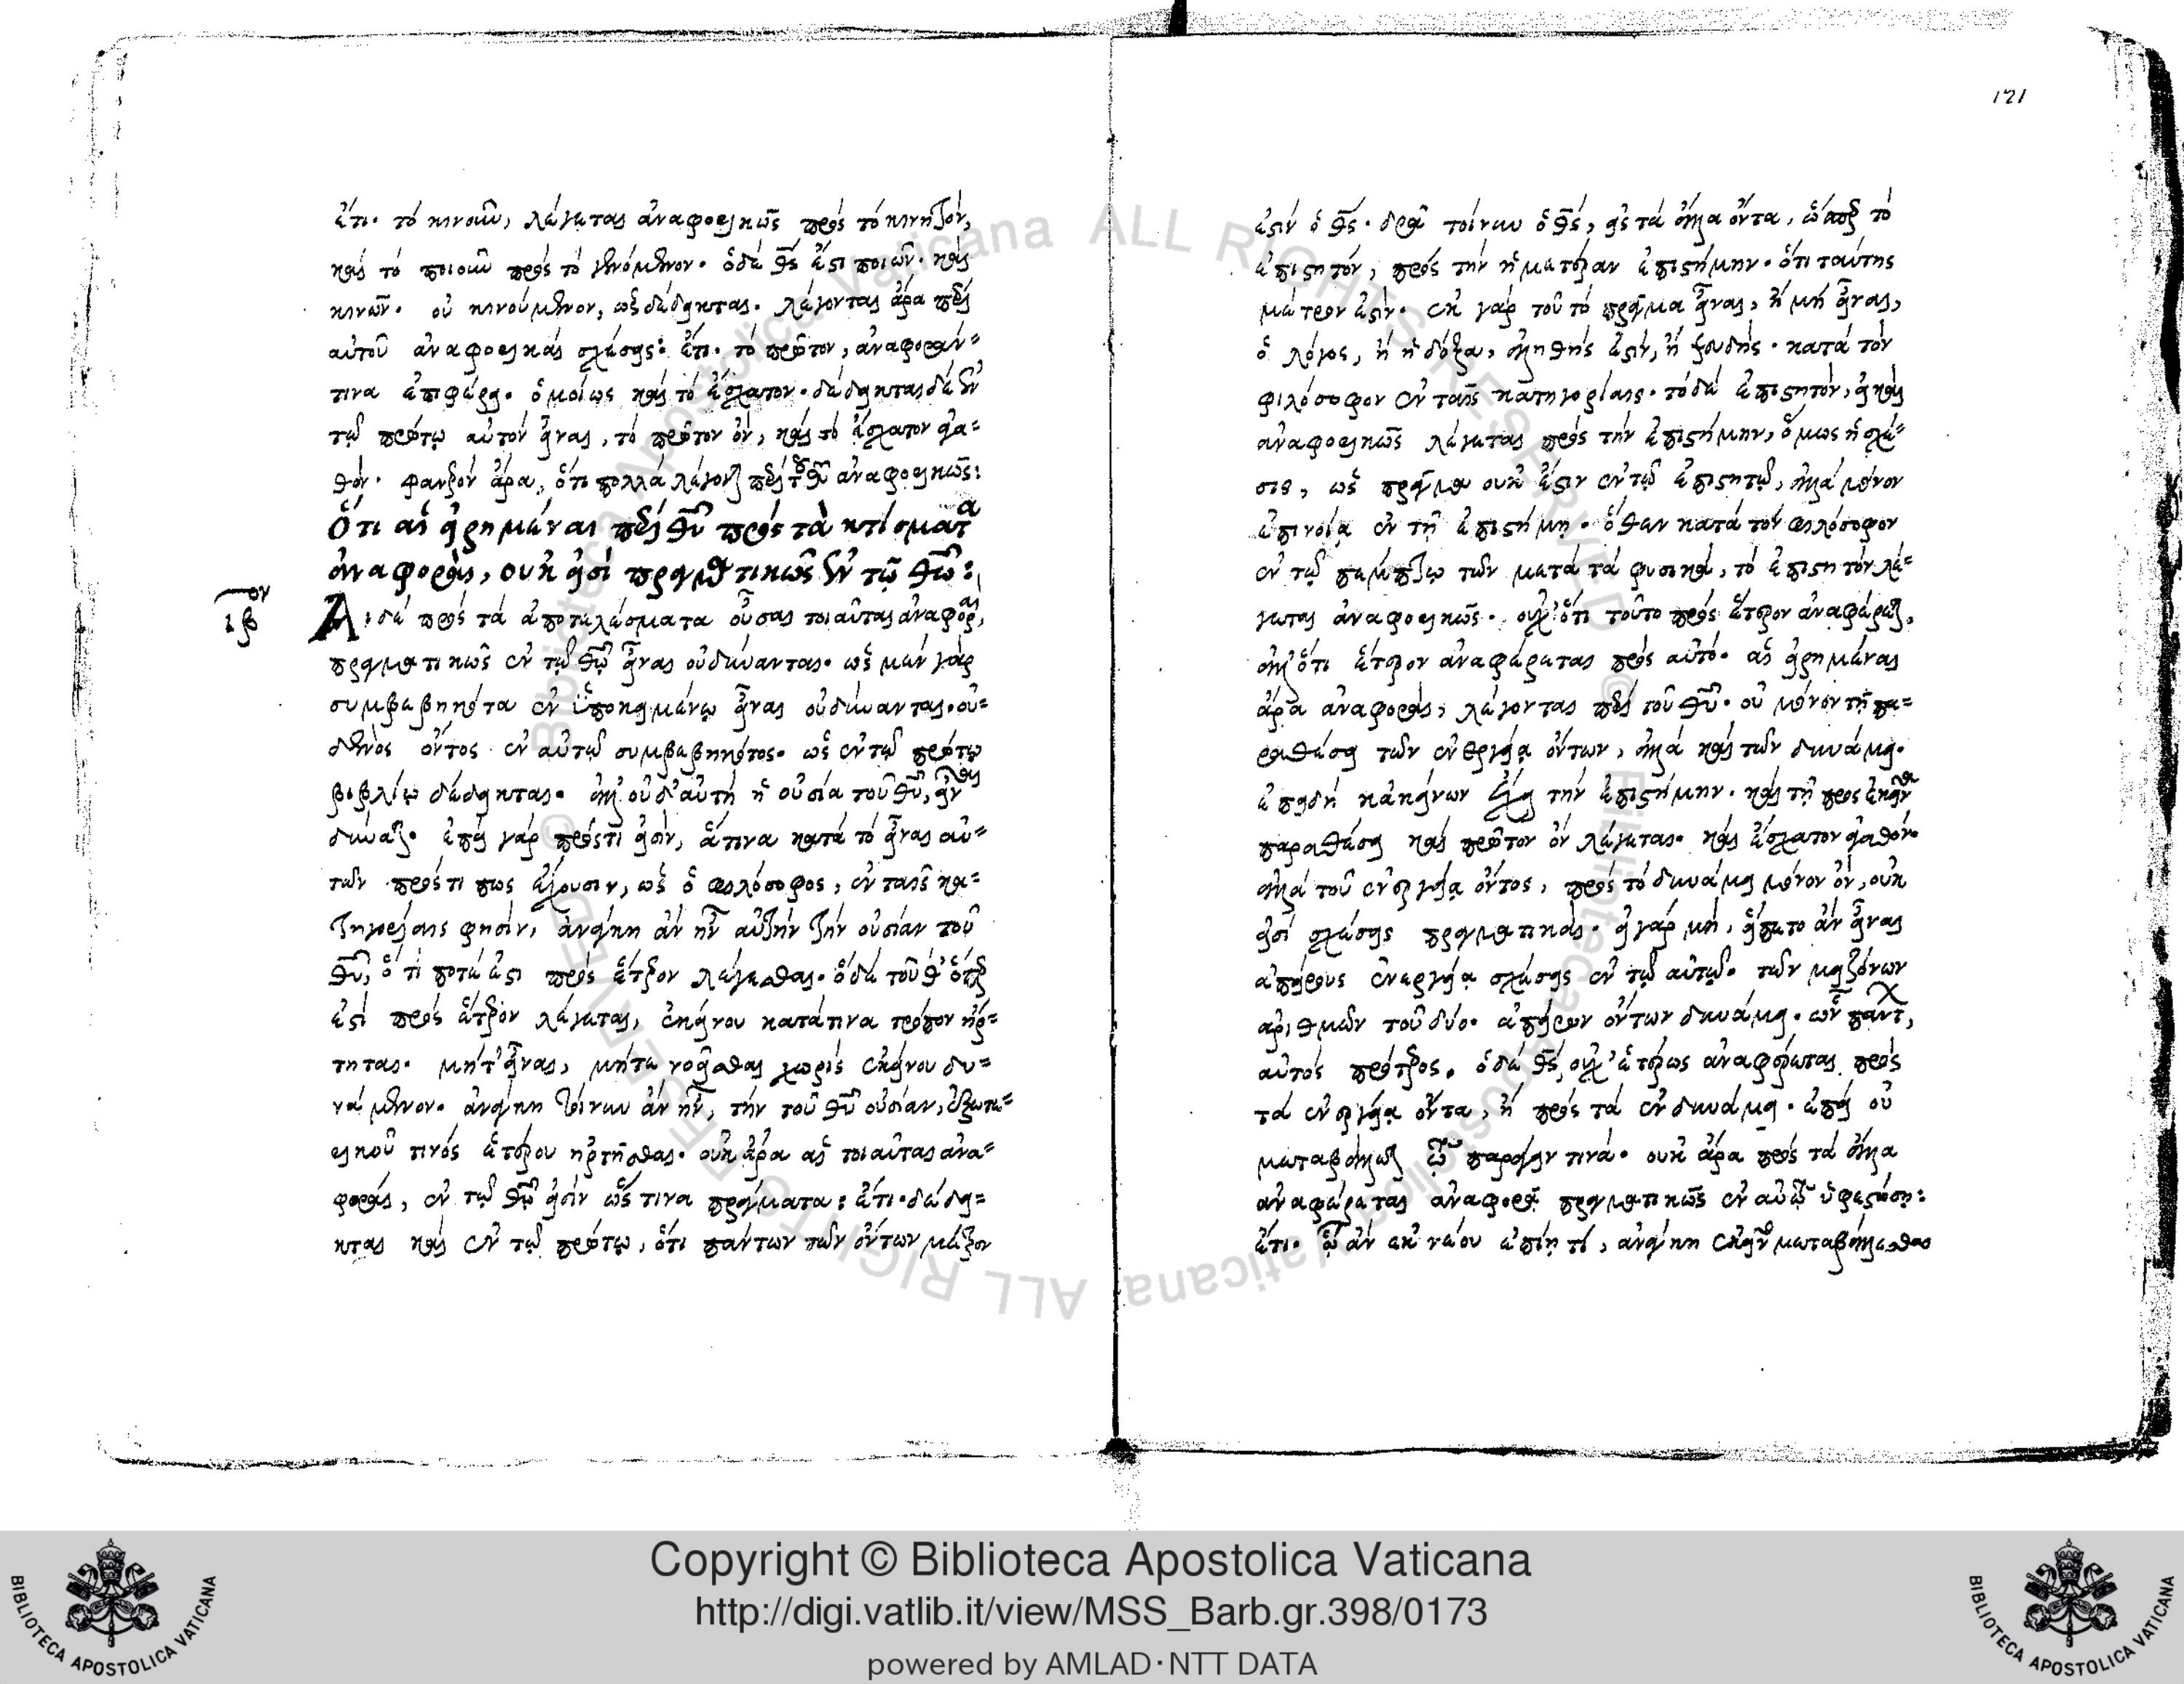 121
ἔτι. τὸ κινοῦν, λέγεται ἀναφορικῶς πρὸς τὸ κινητόν,
καὶ τὸ ποιοῦν πρὸς τὸ γινόμενον. ὁ δὲ θς ἐστι ποιῶν. καὶ
κινῶν. οὐ κινούμενον, ὡς δέδεικται. λέγονται ἄρα περὶ
αὐτοῦ ἀναφορικαὶ σχέσεις: ἔτι. τὸ πρῶτον, ἀναφοράν=
τινα ἐπιφέρει. ὁμοίως καὶ τὸ ἔσχατον. δέδεικται δὲ ἐν
τῷ πρώτῳ αὐτὸν εἶναι, τὸ πρῶτον ὄν, καὶ τὸ ἔσχατον ἀγα=
θόν. φανερὸν ἄρα, ὅτι πολλὰ λέγονται περὶ τοῦ θυ ἀναφορικῶς:
Ὅτι αἱ εἰρημέναι περὶ θυ πρὸς τὰ κτίσματα
ἀναφοραὶ, οὐκ εἰσὶ πραγματικῶς ἐν τῷ θω:
ιβον
Αἱ δὲ πρὸς τὰ ἀποτελέσματα οὖσαι τοιαῦται ἀναφοραὶ,
πραγματικῶς ἐν τῷ θω εἶναι οὐ δύνανται. ὡς μὲν γὰρ
συμβεβηκότα ἐν ὑποκειμένῳ εἶναι οὐ δύνανται. οὐ=
δενὸς ὄντος ἐν αὐτῷ συμβεβηκότος. ὡς ἐν τῷ πρώτῳ
βιβλίῳ δέδεικται. ἀλλ' οὐδ' αὐτὴ ἡ οὐσία τοῦ θυ, εἶναι
δύναται. ἐπεὶ γὰρ πρός τι εἰσὶν, ἅτινα κατὰ τὸ εἶναι αὐ=
τῶν πρός τι πως ἔχουσιν, ὡς ὁ φιλόσοφος, ἐν ταῖς κα=
τηγορίαις φησὶν, ἀνάγκη ἂν ἦν αὐτὴν τὴν οὐσίαν τοῦ
θυ, ὅ τί ποτέ ἐστι πρὸς ἕτερον λέγεσθαι. ὃ δὲ τοῦθ' ὅπερ
ἐστὶ πρὸς ἕτερον λέγεται, ἐκείνου κατά τινα τρόπον ἤρ=
τηται. μήτ' εἶναι, μήτε νοεῖσθαι χωρὶς ἐκείνου δυ=
νάμενον. ἀνάγκη τοίνυν ἂν ἦν, τὴν τοῦ θυ οὐσίαν, ἐξωτε=
ρικοῦ τινὸς ἑτέρου ἠρτῆσθαι. οὐκ ἄρα αἱ τοιαῦται ἀνα=
φοραὶ, ἐν τῷ θω εἰσὶν ὥς τινα πράγματα: ἔτι. δέδει=
κται καὶ ἐν τῷ πρώτῳ, ὅτι πάντων τῶν ὄντων μέτρον
ἐστὶν ὁ θς. ὁρᾶ τοίνυν ὁ θς, εἰς τὰ ἄλλα ὄντα, ὥσπερ τὸ
ἐπιστητὸν, πρὸς τὴν ἡμετέραν ἐπιστήμην. ὅτι ταύτης
μέτρον ἐστὶν. ἐκ γὰρ τοῦ τὸ πρᾶγμα εἶναι, ἢ μὴ εἶναι,
ὁ λόγος, ἢ ἡ δόξα, ἀληθής ἐστιν, ἢ ψευδὴς. κατὰ τὸν
φιλόσοφον ἐν ταῖς κατηγορίαις. τὸ δὲ ἐπιστητὸν, εἰ καὶ
ἀναφορικῶς λέγεται πρὸς τὴν ἐπιστήμην, ὅμως ἡ σχέ=
σις, ὡς πρᾶγμα οὐκ ἔστιν ἐν τῷ ἐπιστητῷ, ἀλλὰ μόνον
ἐπινοίᾳ ἐν τῇ ἐπιστήμῃ. ὅθεν κατὰ τὸν φιλόσοφον
ἐν τῷ πέμπτῳ τῶν μετὰ τὰ φυσικὰ, τὸ ἐπιστητὸν λέ=
γεται ἀναφορικῶς. οὐχ' ὅτι τοῦτο πρὸς ἕτερον ἀναφέρεται,
ἀλλ' ὅτι ἕτερον ἀναφέρεται πρὸς αὐτό. αἱ εἰρημέναι
ἄρα ἀναφοραὶ, λέγονται περὶ τοῦ θυ. οὐ μόνον τῇ πα=
ραθέσει τῶν ἐνεργείᾳ ὄντων, ἀλλὰ καὶ τῶν δυνάμει.
ἐπειδὴ κἀκείνων ἔχει τὴν ἐπιστήμην. καὶ τῇ πρὸς ἐκεῖνα
παραθέσει καὶ πρῶτον ὂν λέγεται. καὶ ἔσχατον ἀγαθόν.
ἀλλὰ τοῦ ἐνεργείᾳ ὄντος, πρὸς τὸ δυνάμει μόνον ὂν, οὐκ
εἰσὶ σχέσεις πραγματικαὶ. εἰ γὰρ μὴ, εἵπετο ἂν εἶναι
ἀπείρους ἐνεργείᾳ σχέσεις ἐν τῷ αὐτῷ. τῶν μειζόνων
ἀριθμῶν τοῦ δύο. ἀπείρων ὄντων δυνάμει. ὧν πάντων,
αὐτὸς πρότερος. ὁ δὲ θς, οὐχ' ἑτέρως ἀναφέρεται πρὸς
τὰ ἐνεργείᾳ ὄντα, ἢ πρὸς τὰ ἐν δυνάμει. ἐπεὶ οὐ
μεταβάλλεται τῷ παράγειν τινά. οὐκ ἄρα πρὸς τὰ ἄλλα
ἀναφέρεται ἀναφορᾷ πραγματικῶς ἐν αὐτῷ ὑφεστώσῃ:
ἔτι. ᾧ ἂν ἐκ νέου ἐπίῃ τί, ἀνάγκη ἐκεῖνο μεταβάλλεσθαι
Copyright © Biblioteca Apostolica Vaticana
http://digi.vatlib.it/view/MSS_Barb.gr.398/0173
powered by AMLAD·NTT DATA
BIBLIOTECA APOSTOLICA VATICANA
BIBLIOTECA APOSTOLICA VATICANA
© Biblioteca Apostolica Vaticana ALL RIGHTS RESERVED
© Biblioteca Apostolica Vaticana ALL RIGHTS RESERVED